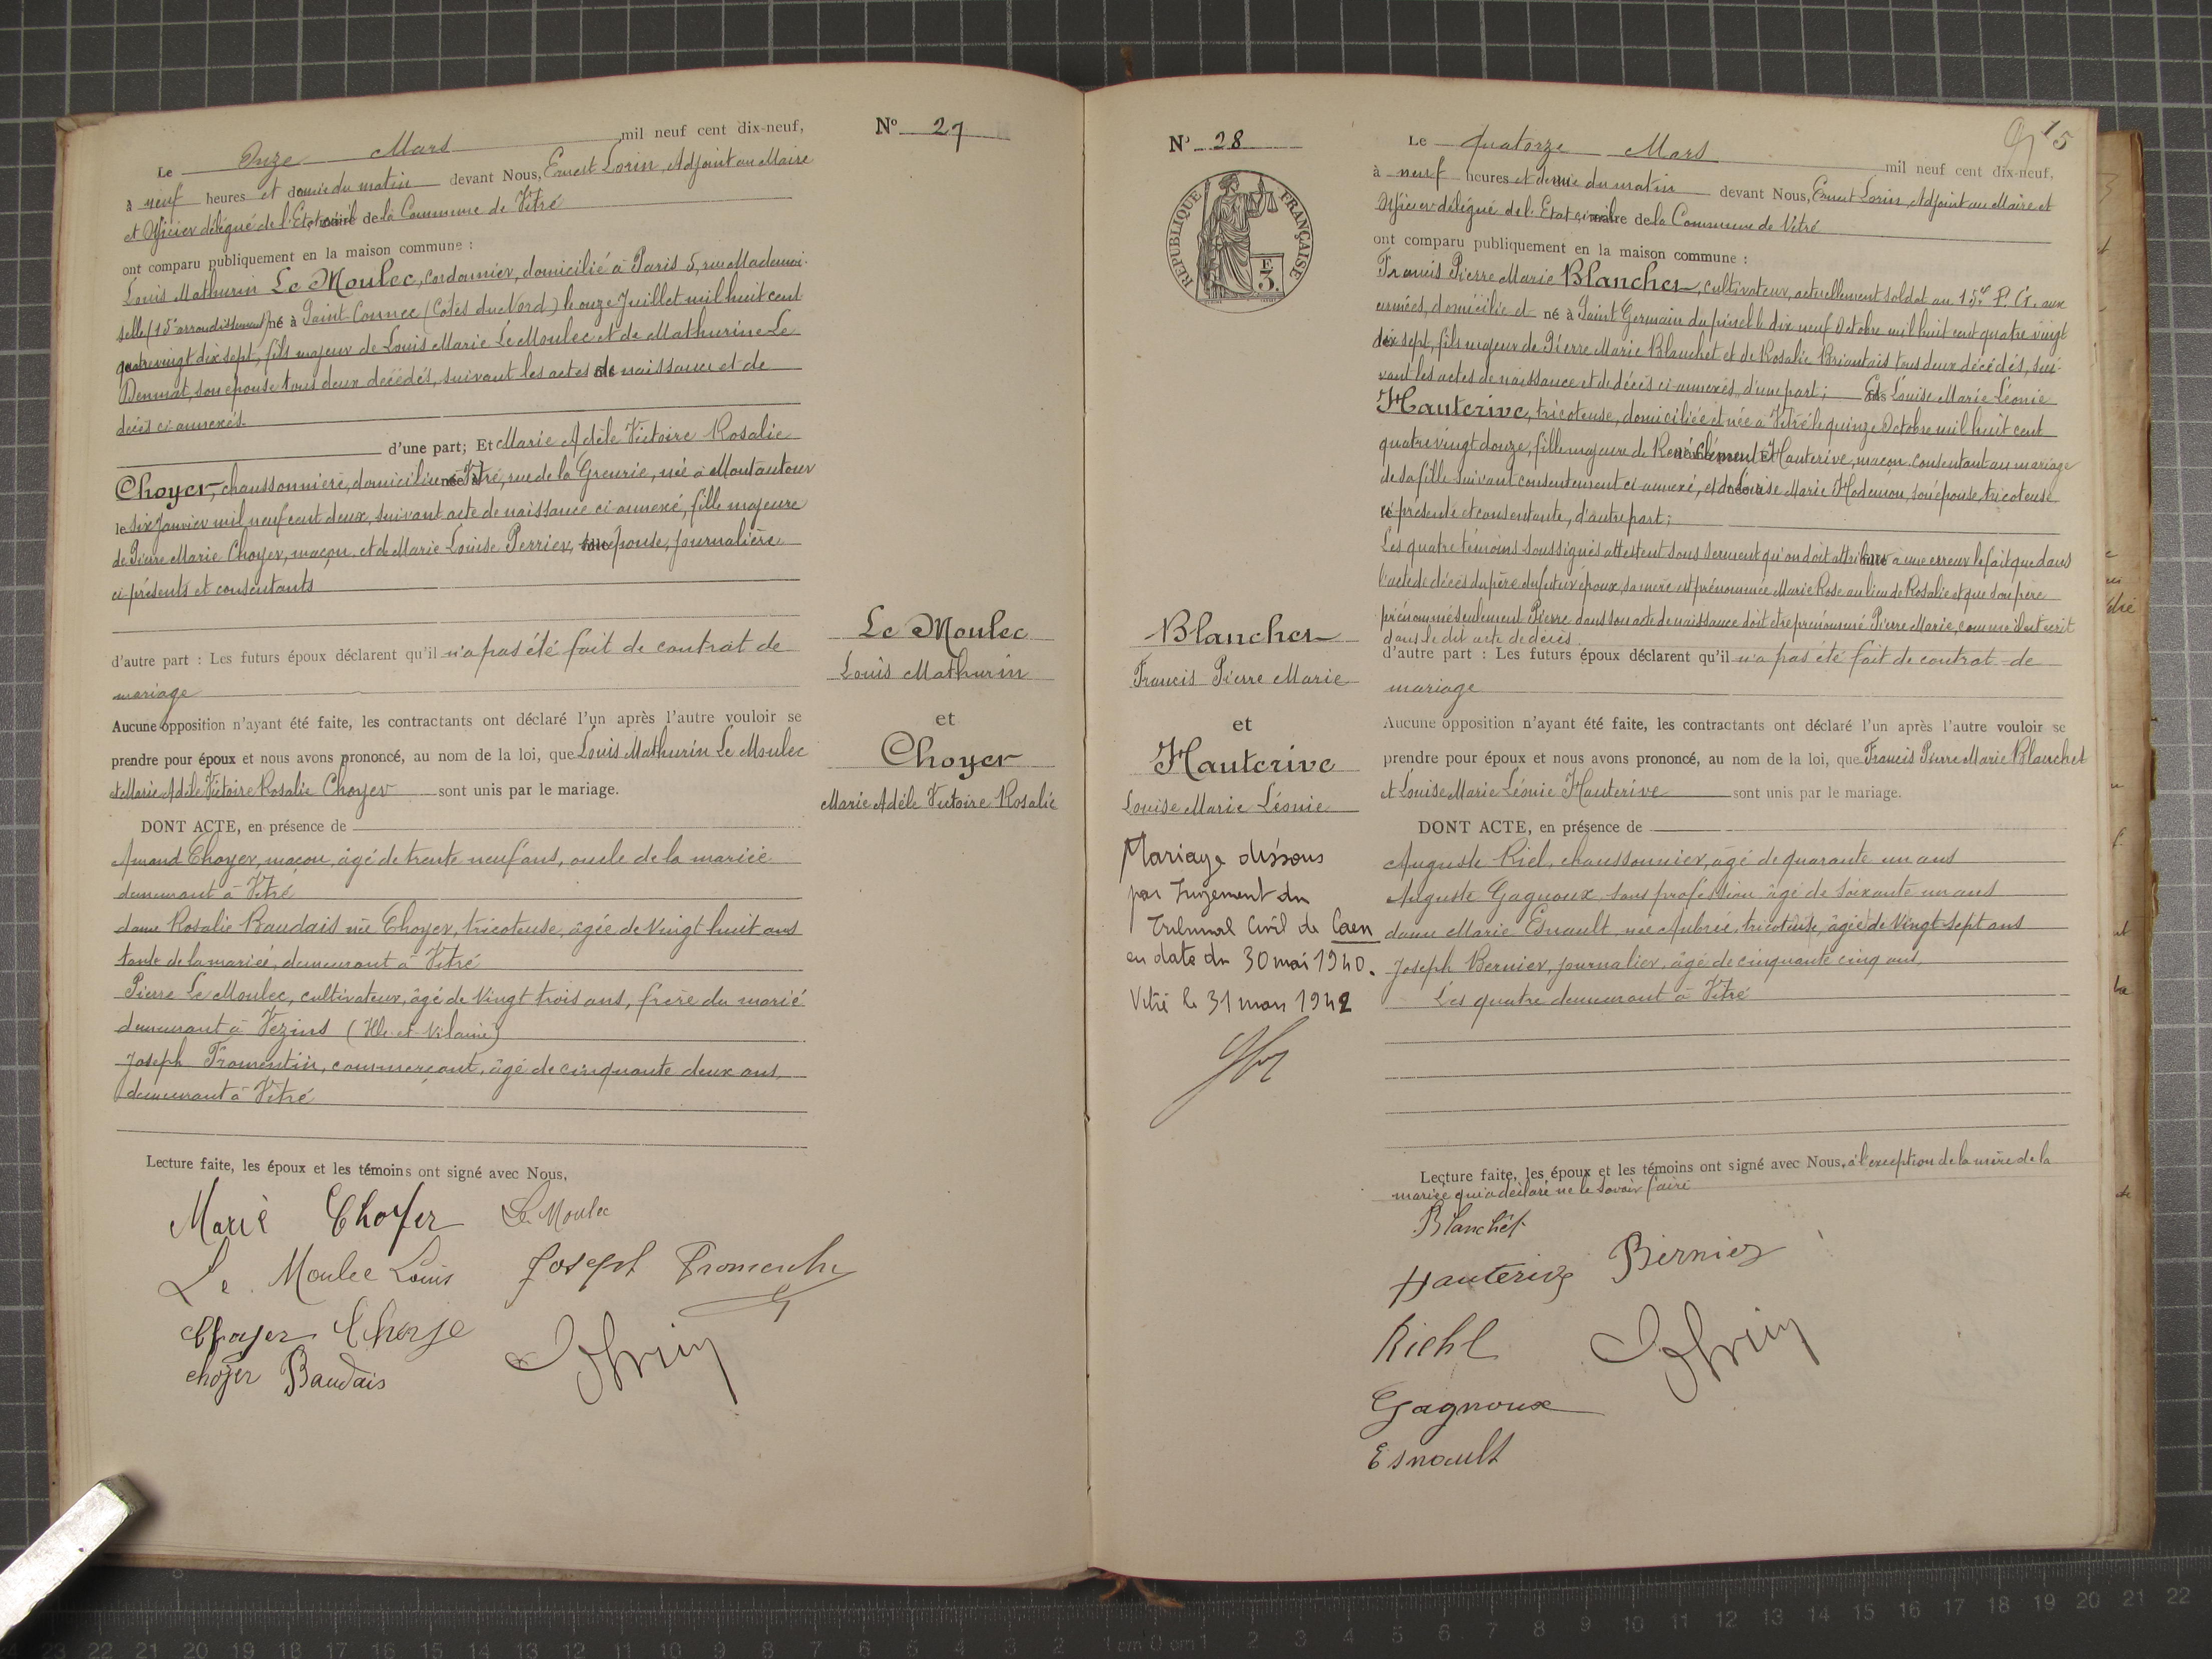 N° 27
Le Onze Mars mil neuf cent dix-neuf,
à neuf heures et demie du matin devant Nous, Ernest Lorin, Adjoint au Maire
et Officier délégué de l'Etat civil de la Commune de Vitré
ont comparu publiquement en la maison commune :
Louis Mathurin Le Moulec, cordonnier, domicilié à Paris 5, rue Mademoi-
selle (15e arrondissement) né à Saint-Connec (Côtes du Nord) le onze Juillet mil huit cent
quatre vingt dix sept, fils majeur de Louis Marie Le Moulec et de Mathurine Le
Denmat, son épouse tous deux décédés, suivant les actes de naissance et de
décès ci-annexés.
d'une part; Et Marie Adèle Victoire Rosalie
Choyer, chaussonnière, domiciliée à Vitré, rue de la Greurie, née à Montautour
le six Janvier mil neuf cent deux, suivant acte de naissance ci-annexé, fille majeure
de Pierre Marie Choyer, maçon, et de Marie Louise Perrier, son épouse, journalière
ci-présents et consentants
d'autre part : Les futurs époux déclarent qu'il n'a pas été fait de contrat de
mariage
Aucune opposition n'ayant été faite, les contractants ont déclaré l'un après l'autre vouloir se
prendre pour époux et nous avons prononcé, au nom de la loi, que Louis Mathurin Le Moulec
et Marie Adèle Victoire Rosalie Choyer sont unis par le mariage.
DONT ACTE, en présence de
Amand Choyer, maçon, âgé de trente neuf ans, oncle de la mariée
demeurant à Vitré
dame Rosalie Baudais née Choyer, tricoteuse, âgée de vingt huit ans
tante de la mariée, demeurant à Vitré
Pierre Le Moulec, cultivateur, âgé de vingt trois ans, frère du marié
demeurant à Vezins (Ille-et-Vilaine)
Joseph Fromentin, commerçant, âgé de cinquante deux ans,
demeurant à Vitré
Lecture faite, les époux et les témoins ont signé avec Nous,
Marie Choyer Le Moulec
Le Moulec Louis Joseph Fromentin
Choyer
choyer Baudais Lorin
Le Moulec
Louis Mathurin
et
Choyer
Marie Adèle Victoire Rosalie
15
N° 28
RÉPUBLIQUE FRANÇAISE
F.
3.
Le quatorze Mars mil neuf cent dix-neuf,
à neuf heures et demie du matin devant Nous, Ernest Lorin, Adjoint au Maire et
Officier délégué de l'Etat civil de la Commune de Vitré
ont comparu publiquement en la maison commune :
Francis Pierre Marie Blanchet, cultivateur, actuellement soldat au 15e aux
armées, domicilié et né à Saint Germain du pinel le dix neuf Octobre mil huit cent quatre vingt
dix sept, fils majeur de Pierre Marie Blanchet et de Rosalie Briantais tous deux décédés, sui-
vant les actes de naissance et de décès ci-annexés, d'une part; Et Louise Marie Léonie
Hauterive, tricoteuse, domiciliée et née à Vitré le quinze Octobre mil huit cent
quatre vingt douze, fille majeure de René Clément Hauterive, maçon consentant au mariage
de sa fille suivant consentement ci-annexé, et de Louise Marie Hodemon, son épouse tricoteuse
ci-présente et consentante, d'autre part;
Les quatre témoins soussignés attestent sous serment qu'on doit attribuer à une erreur le fait que dans
l'acte de décès du père du futur époux, sa mère est prénommée Marie Rose au lieu de Rosalie et que son père
prénommé seulement Pierre dans son acte de naissance doit être prénommé Pierre Marie, comme il est écrit
dans le dit acte de décès
d'autre part : Les futurs époux déclarent qu'il n'a pas été fait de contrat de
mariage
Aucune opposition n'ayant été faite, les contractants ont déclaré l'un après l'autre vouloir se
prendre pour époux et nous avons prononcé, au nom de la loi, que Francis Pierre Marie Blanchet
et Louise Marie Léonie Hauterive sont unis par le mariage.
DONT ACTE, en présence de
Auguste Riel, chaussonnier, âgé de quarante un ans
Auguste Gagnoux sans profession âgé de soixante un ans
dame Marie Esnault née Aubrée, tricoteuse, âgée de vingt sept ans
Joseph Bernier, journalier, âgé de cinquante cinq ans,
Les quatre demeurant à Vitré
Lecture faite, les époux et les témoins ont signé avec Nous, à l'exception de la mère de la
mariée qui a déclaré ne le savoir faire
Blanchet
Hauterive Bernier
Riehl Lorin
Gagnoux
Esnault
Blanchet
Francis Pierre Marie
et
Hauterive
Louise Marie Léonie
Mariage dissous
par Jugement du
Tribunal Civil de Caen
en date du 30 mai 1940.
Vitré le 31 mars 1942
23 22 21 20 19 18 17 16 15 14 13 12 11 10 9 8 7 6 5 4 3 2 1 cm 0 cm 1 2 3 4 5 6 7 8 9 10 11 12 13 14 15 16 17 18 19 20 21 22